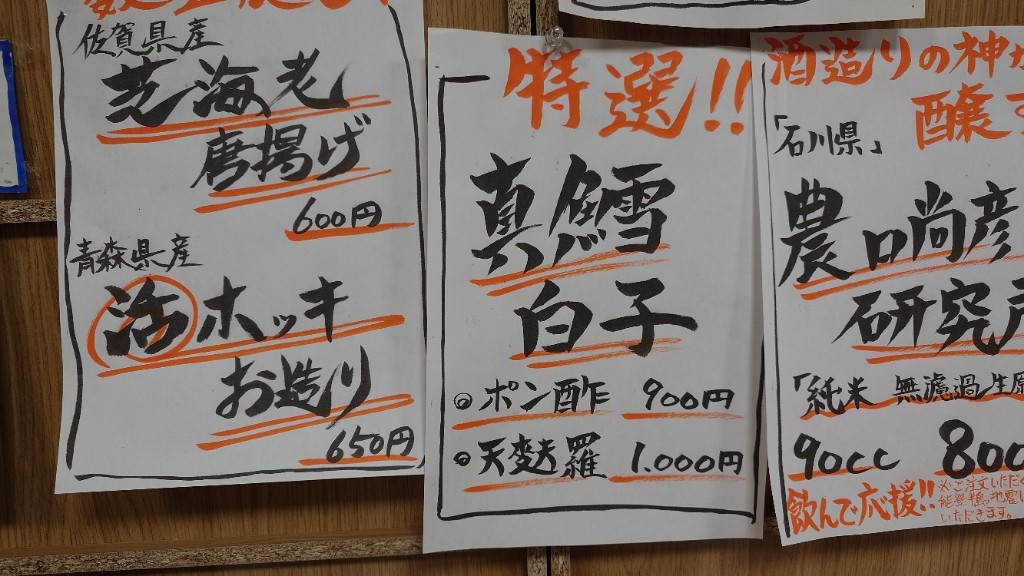 佐賀県産
芝海老
唐揚げ
600円
青森県産
活ホッキ
お造り
650円
特選!!
真鱈
白子
ポン酢 900円
天麩羅 1.000円
酒造りの神が
醸す
「石川県」
農口尚彦
研究所
「純米 無濾過生原
90cc 800
飲んで応援!!
※ご注文いただく
いただきます。